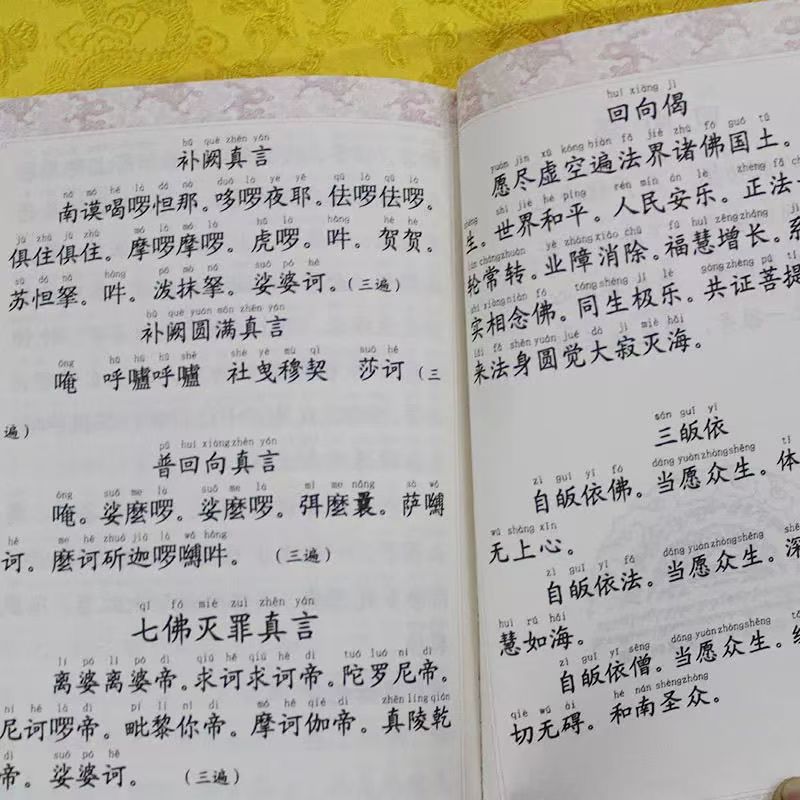 bǔ què zhēn yán
补阙真言
nā mó hē là dá nà duō là yè yē qū là qū là
南谟喝啰怛那。哆啰夜耶。佉啰佉啰。
jù zhù jù zhù mó là mó là hǔ là hōng hè hè
俱住俱住。摩啰摩啰。虎啰。吽。贺贺。
sū dá ná hōng pō mò ná suō pó hē
苏怛拏。吽。泼抹拏。娑婆诃。(三遍)
bǔ què yuán mǎn zhēn yán
补阙圆满真言
ōng hū lú hū lú shè yè mù qì suō hē
唵 呼嚧呼嚧 社曳穆契 莎诃(三
遍)
pǔ huí xiàng zhēn yán
普回向真言
ōng suō me là suō me là mí me nǎng sà wā
唵。娑麽啰。娑麽啰。弭麽曩。萨嚩
hē me hē zhuó jiā là wā hōng
诃。麽诃斫迦啰嚩吽。(三遍)
qī fó miè zuì zhēn yán
七佛灭罪真言
lí pó lí pó dì qiú hē qiú hē dì tuó luó ní dì
离婆离婆帝。求诃求诃帝。陀罗尼帝。
ní hē là dì pí lí nǐ dì mó hē qié dì zhēn líng qián
尼诃啰帝。毗黎你帝。摩诃伽帝。真陵乾
dì suō pó hē
帝。娑婆诃。(三遍)
huí xiàng jì
回向偈
yuàn jìn xū kōng biàn fǎ jiè zhū fó guó tǔ
愿尽虚空遍法界诸佛国土。
shēng shì jiè hé píng rén mín ān lè
生。世界和平。人民安乐。正法
lún cháng zhuǎn yè zhàng xiāo chú fú huì zēng zhǎng
轮常转。业障消除。福慧增长。
shí xiàng niàn fó tóng shēng jí lè gòng zhèng pú tí
实相念佛。同生极乐。共证菩提
lái fǎ shēn yuán jué dà jì miè hǎi
来法身圆觉大寂灭海。
sān guī yī
三皈依
zì guī yī fó dāng yuàn zhòng shēng
自皈依佛。当愿众生。体
wú shàng xīn
无上心。
zì guī yī fǎ dāng yuàn zhòng shēng
自皈依法。当愿众生。深
huì rú hǎi
慧如海。
zì guī yī sēng dāng yuàn zhòng shēng
自皈依僧。当愿众生。
qiè wú ài hé nán shèng zhòng
切无碍。和南圣众。